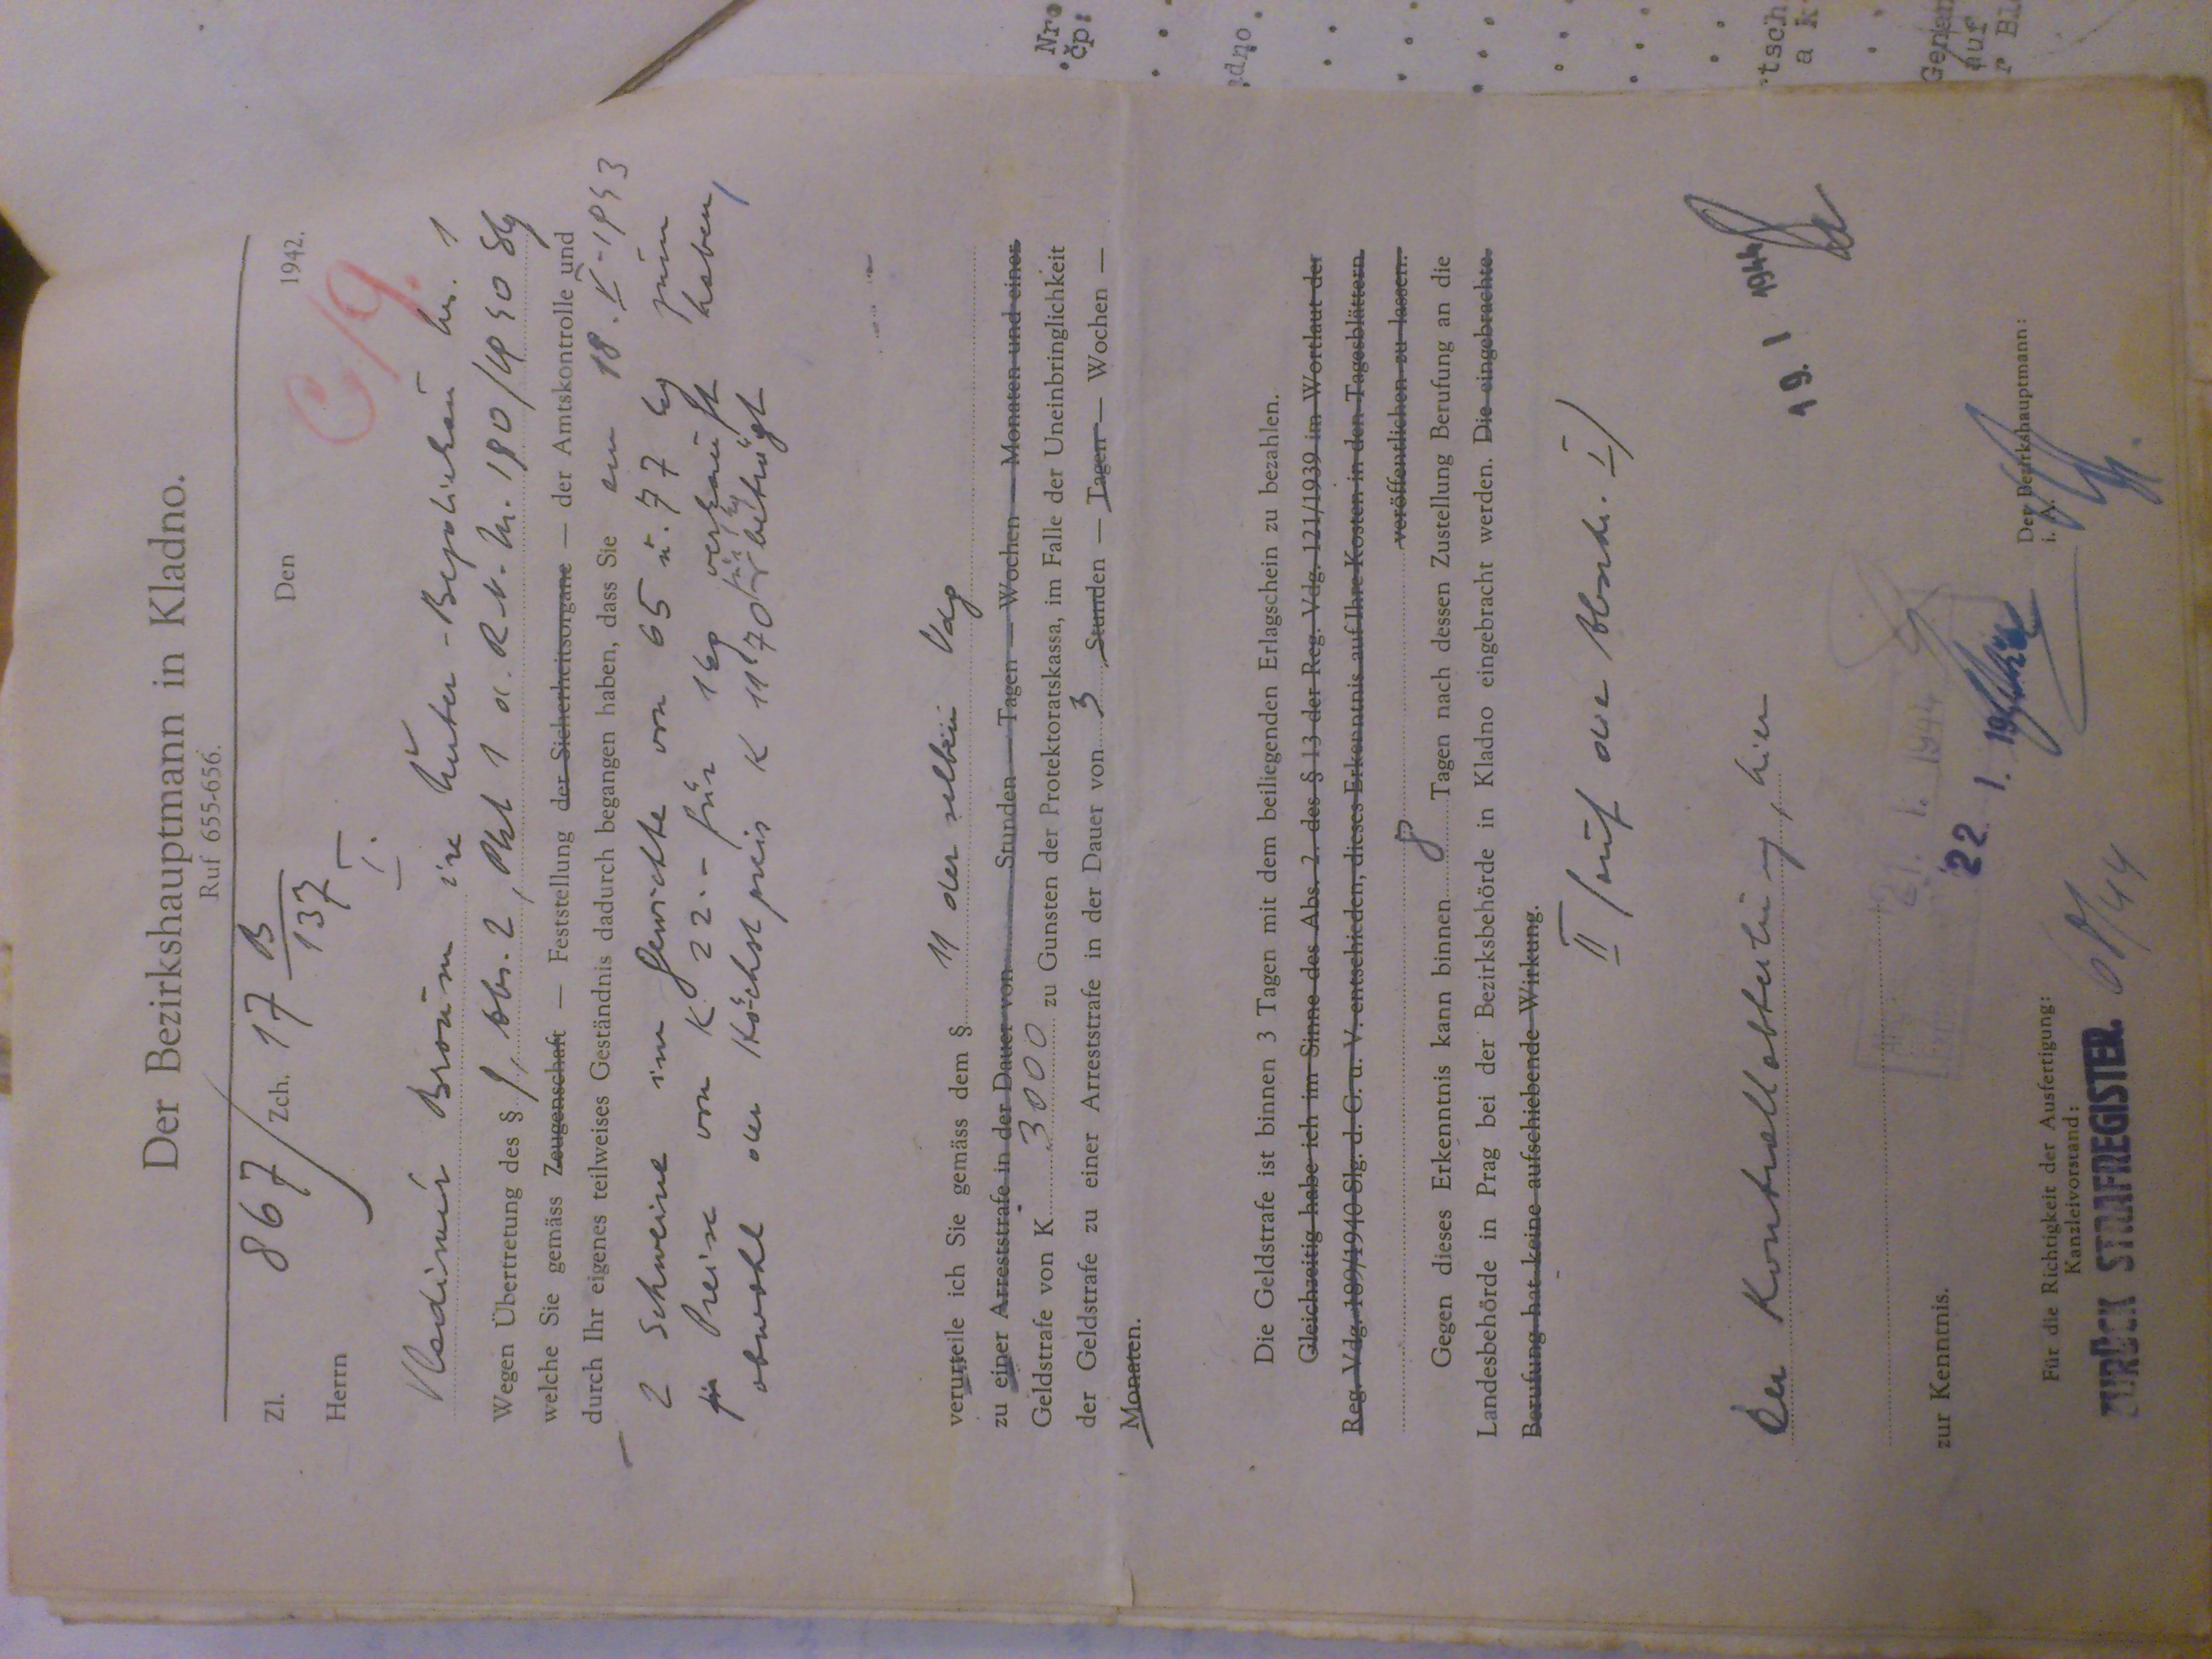 Der Bezirkshauptmann in Kladno.
Ruf 655-656.
Zl. 867/Zch. 17 B/137
Den 1942.
C/9.
Herrn
I.
Vladimír Broum in Unter-Bezdiekau Nr. 1
Wegen Übertretung des § 9, Abs. 2, Pkt 1 d. R.V. Nr. 190/1940 Slg
welche Sie gemäss Zeugenschaft — Feststellung der Sicherheitsorgane — der Amtskontrolle und
durch Ihr eigenes teilweises Geständnis dadurch begangen haben, dass Sie am 18. V. 1943
2 Schweine im Gewichte von 65 u. 77 kg zum
Preise von K 22.- für 1 kg verkauft haben,
obwohl der Höchstpreis K 11.70 für 1 kg beträgt
verurteile ich Sie gemäss dem § 11 der selben Vdg
zu einer Arreststrafe in der Dauer von Stunden — Tagen — Wochen — Monaten und einer
Geldstrafe von K 3000 zu Gunsten der Protektoratskassa, im Falle der Uneinbringlichkeit
der Geldstrafe zu einer Arreststrafe in der Dauer von 3 Stunden — Tagen — Wochen —
Monaten.
Die Geldstrafe ist binnen 3 Tagen mit dem beiliegenden Erlagschein zu bezahlen.
Gleichzeitig habe ich im Sinne des Abs. 2. des § 13 der Reg. Vdg. 121/1939 im Wortlaut der
Reg. Vdg. 189/1940 Slg. d. G. u. V. entschieden, dieses Erkenntnis auf Ihre Kosten in den Tagesblättern
veröffentlichen zu lassen.
Gegen dieses Erkenntnis kann binnen 8 Tagen nach dessen Zustellung Berufung an die
Landesbehörde in Prag bei der Bezirksbehörde in Kladno eingebracht werden. Die eingebrachte
Berufung hat keine aufschiebende Wirkung.
II (auf die Abschr. I)
Der Kontrollabteilung, hier
19. I 1944
21. I. 1944
zur Kenntnis.
22. I. 19
Der Bezirkshauptmann:
i. A.
Für die Richtigkeit der Ausfertigung:
Kanzleivorstand:
ZURÜCK STRAFREGISTER.
Nr.
čp:
adno
tsch
a k
Genan
auf
r Bl